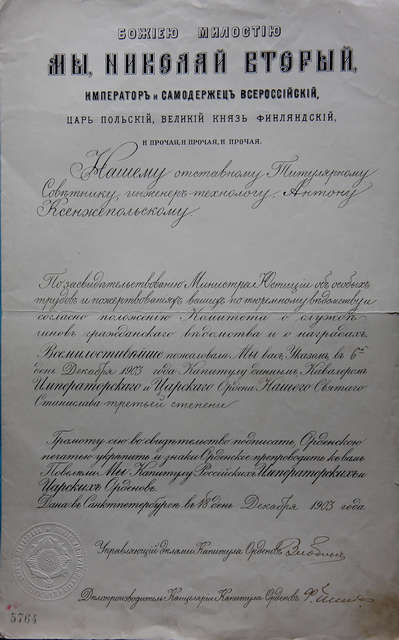 БОЖІЕЮ МИЛОСТІЮ
МЫ, НИКОЛАЙ ВТОРЫЙ,
ИМПЕРАТОРЪ и САМОДЕРЖЕЦЪ ВСЕРОССІЙСКІЙ,
ЦАРЬ ПОЛЬСКІЙ, ВЕЛИКІЙ КНЯЗЬ ФИНЛЯНДСКІЙ,
И ПРОЧАЯ, И ПРОЧАЯ, И ПРОЧАЯ.
Нашему отставному Титулярному
Совѣтнику, инженеръ-технологу Антону
Ксенжепольскому
По засвидѣтельствованію Министра Юстиціи объ особыхъ
трудахъ и пожертвованіяхъ вашихъ по тюремному вѣдомству и
согласно положенію Комитета о службѣ
чиновъ гражданскаго вѣдомства и о наградахъ
Всемилостивѣйше пожаловали Мы васъ, Указомъ, въ 6й
день Декабря 1903 года Капитулу даннымъ, Кавалеромъ
Императорскаго и Царскаго Ордена Нашего Святаго
Станислава третьей степени
Грамоту сію во свидѣтельство подписать, Орденскою
печатью укрѣпить и знаки Орденскіе препроводить къ вамъ
Повелѣли Мы Капитулу Россійскихъ Императорскихъ и
Царскихъ Орденовъ.
Дана въ Санктпетербургѣ въ 18 день Декабря 1903 года
Управляющій дѣлами Капитула Орденовъ
Дѣлопроизводитель Канцеляріи Капитула Орденовъ
5764